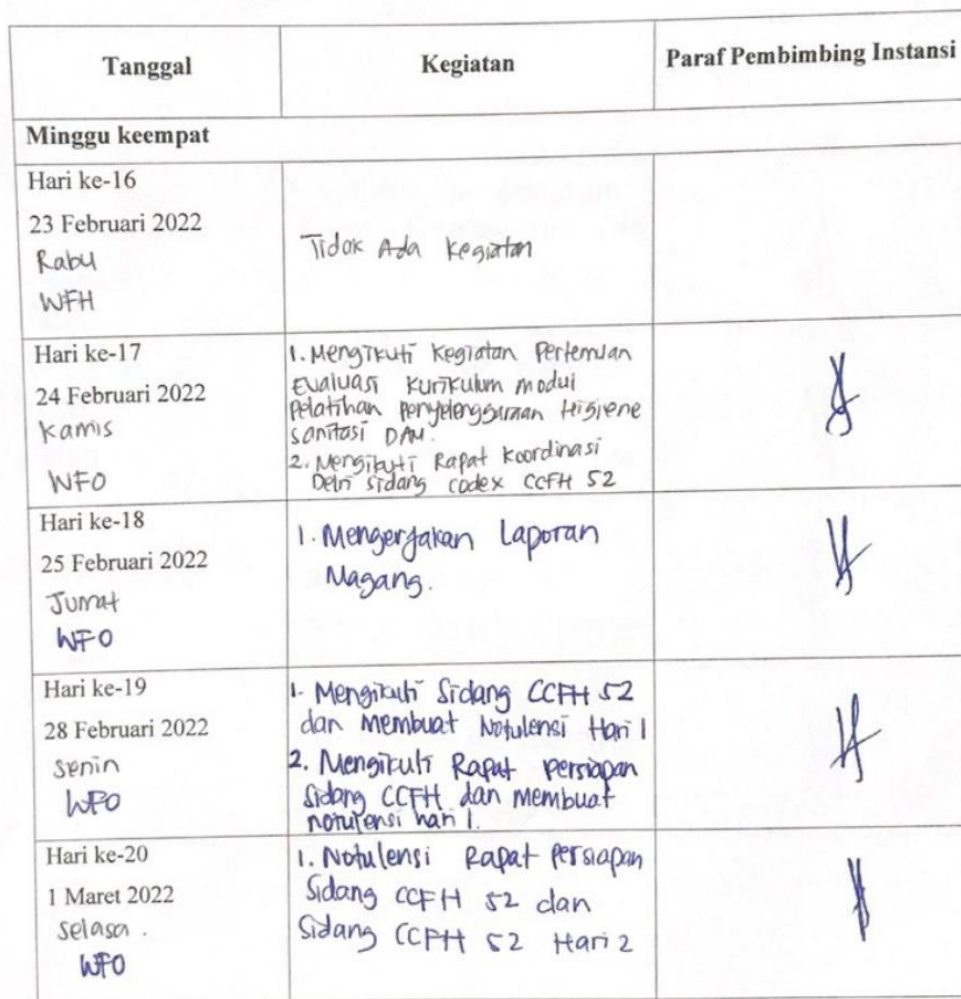 Tanggal Kegiatan Paraf Pembimbing Instansi
Minggu keempat
Hari ke-16
23 Februari 2022
Rabu
WFH
Tidak Ada kegiatan
Hari ke-17
24 Februari 2022
Kamis
WFO
1. Mengikuti Kegiatan Pertemuan
Evaluasi Kurikulum modul
Pelatihan Penyelenggaraan Higiene
Sanitasi DAM.
2. Mengikuti Rapat Koordinasi
Delri Sidang codex CCFH 52
Hari ke-18
25 Februari 2022
Jumat
WFO
1. Mengerjakan Laporan
Magang.
Hari ke-19
28 Februari 2022
Senin
WFO
1. Mengikuti Sidang CCFH 52
dan Membuat Notulensi Hari 1
2. Mengikuti Rapat Persiapan
Sidang CCFH dan Membuat
notulensi hari 1.
Hari ke-20
1 Maret 2022
Selasa.
WFO
1. Notulensi Rapat Persiapan
Sidang CCFH 52 dan
Sidang CCFH 52 Hari 2